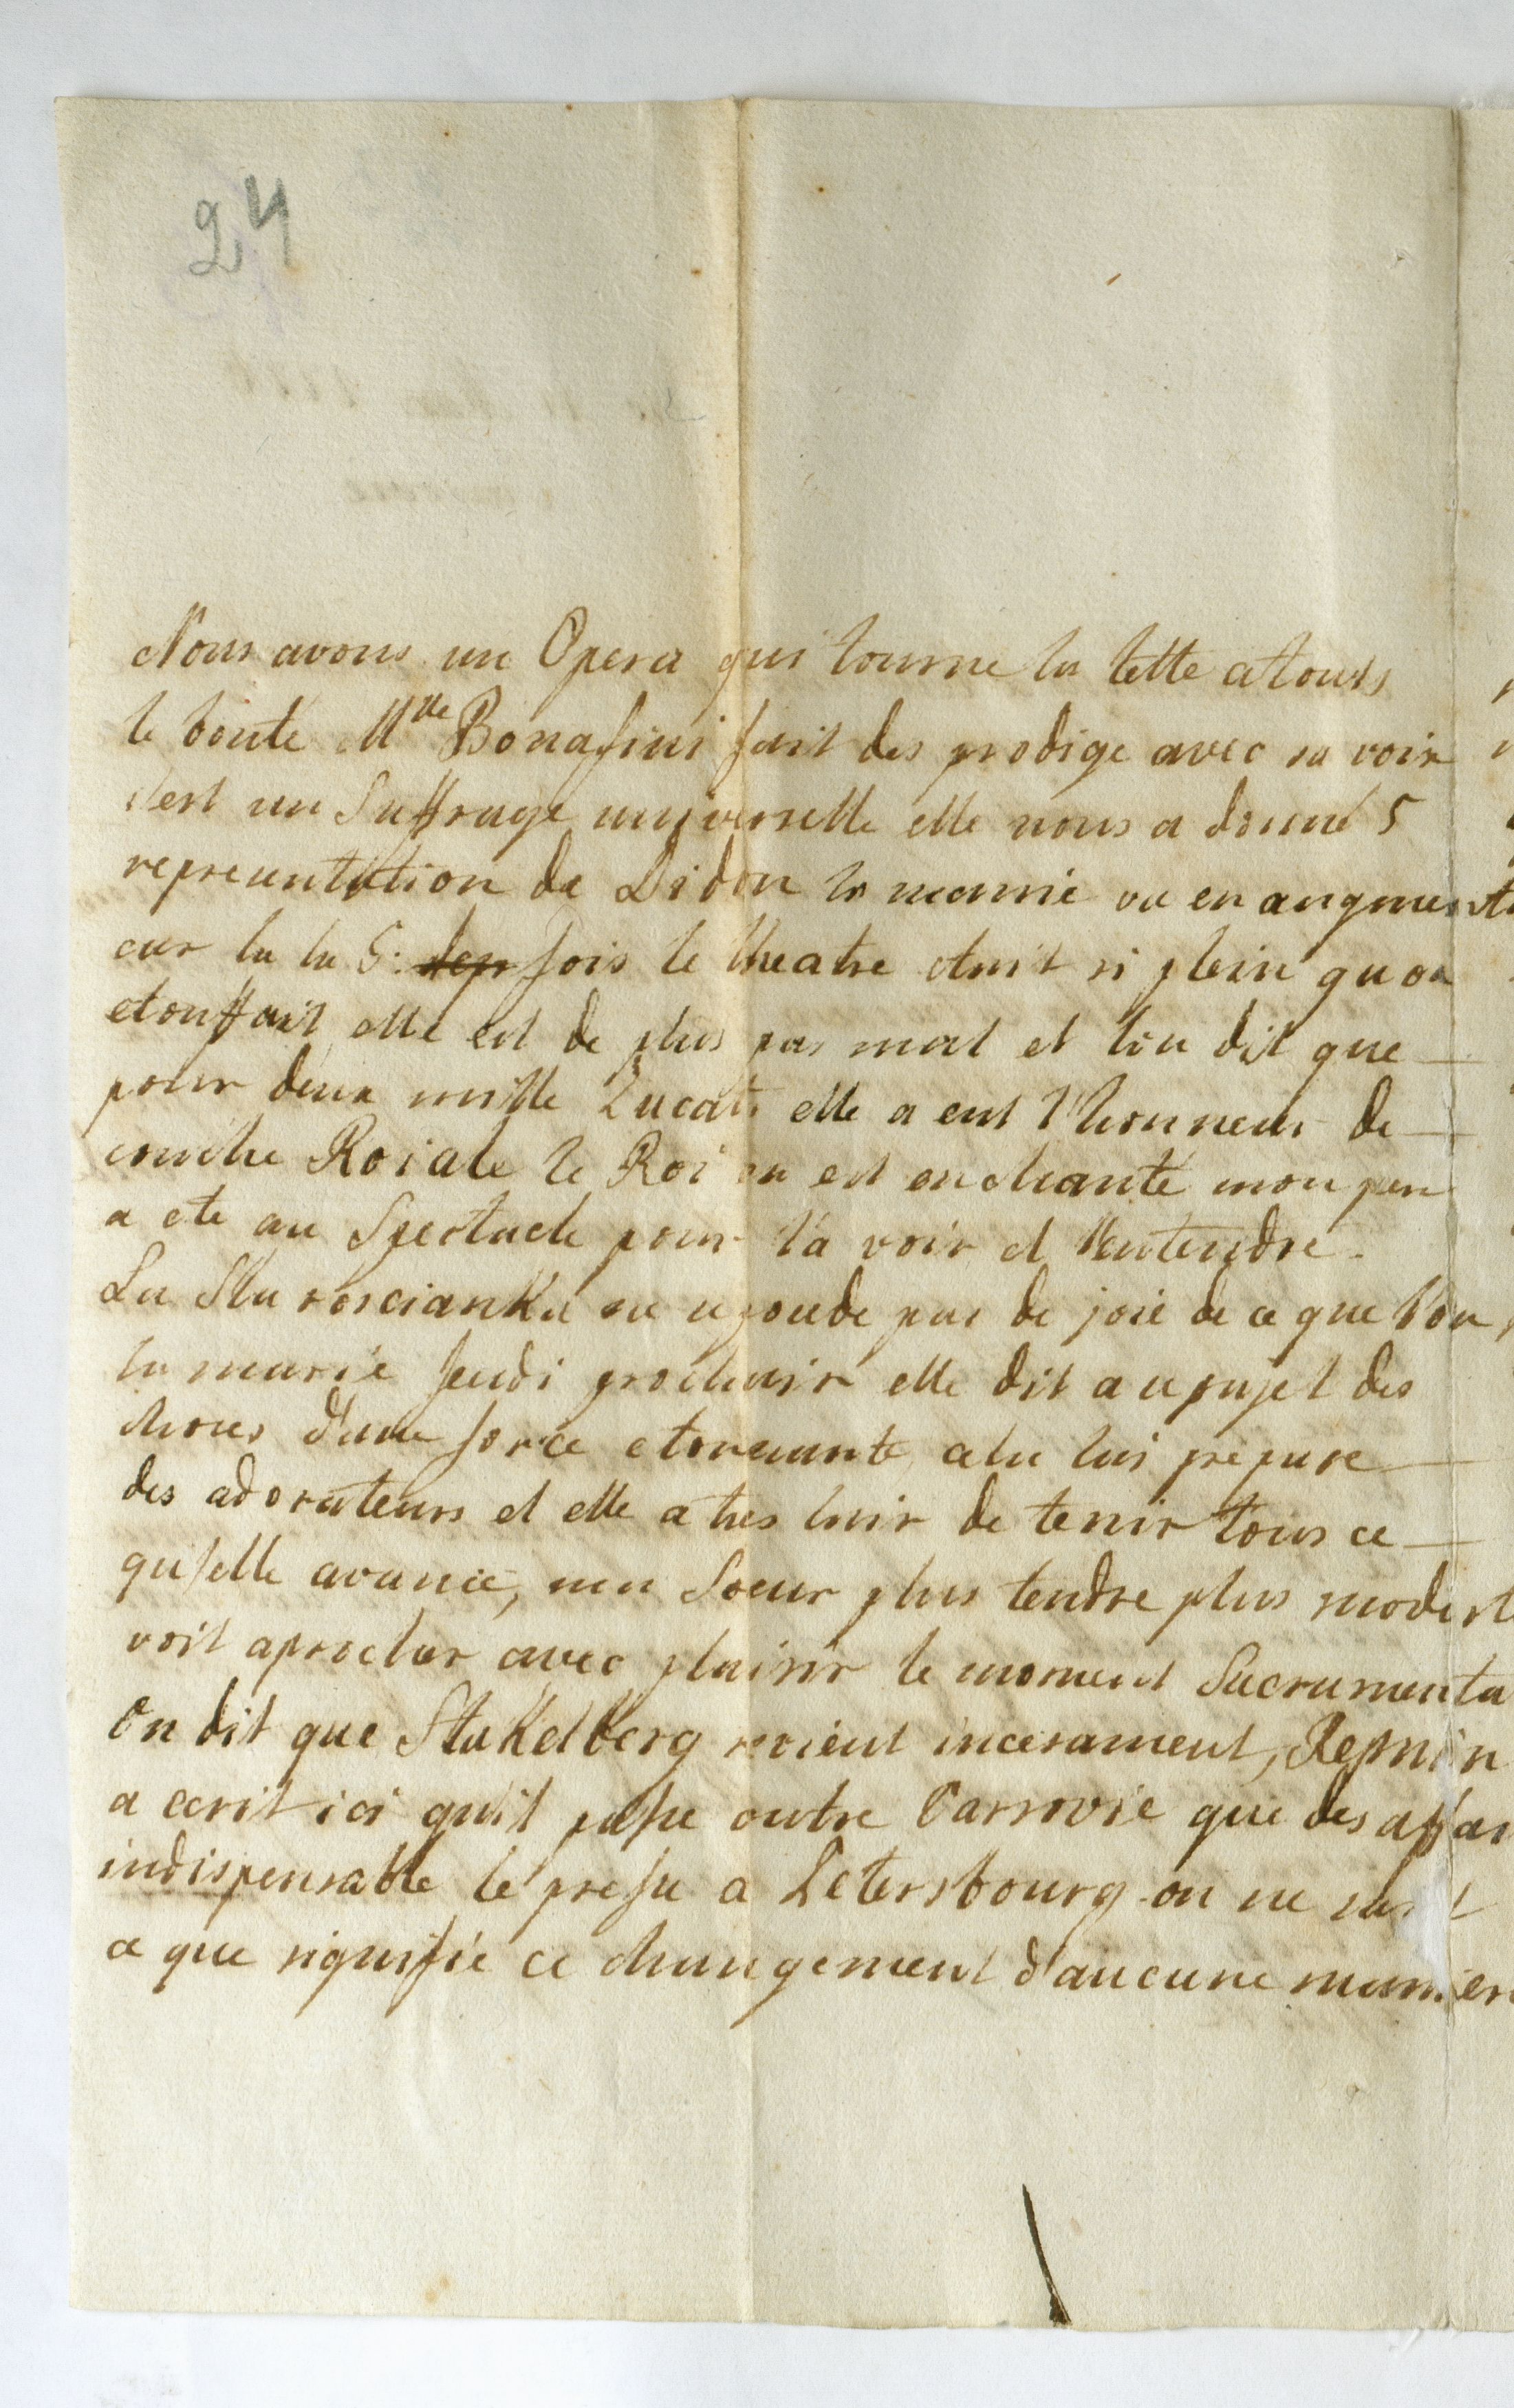 24
Nous avons un Opera qui tourne la tette a tous
le bonté Mlle Bonafini fait des prodige avec sa voix
c'est un Suffrage universelle elle nous a donné 5
representation de Didon la manie va en augmenta
car la la 5: fois le theatre etait si plein quon
etouffait elle est de plus pas mal et lon dit que
pour deux mille Ducats elle a eut l'honneur de
couche Roiale le Roi en est enchanté mon pere
a ete au Spectacle pour la voir et l'entendre.
La Staroscianka ne se poude pas de joie de ce que l'on
la marie Jeudi prochain elle dit a ce sujet des
choses d'une force etonnante cela lui prepare
des adorateurs et elle a tres l'air de tenir tous ce
qu'elle avance, ma Soeur plus tendre plus modeste
voit aprocher avec plaisir le moment Sacramenta
On dit que Stakelberg revient incesament, Repnin
a ecrit ici qu'il passe outre Varsovie que des affai
indispensable le presse a Petersbourg on ne sait
ce que signifie ce changement d'aucune manier